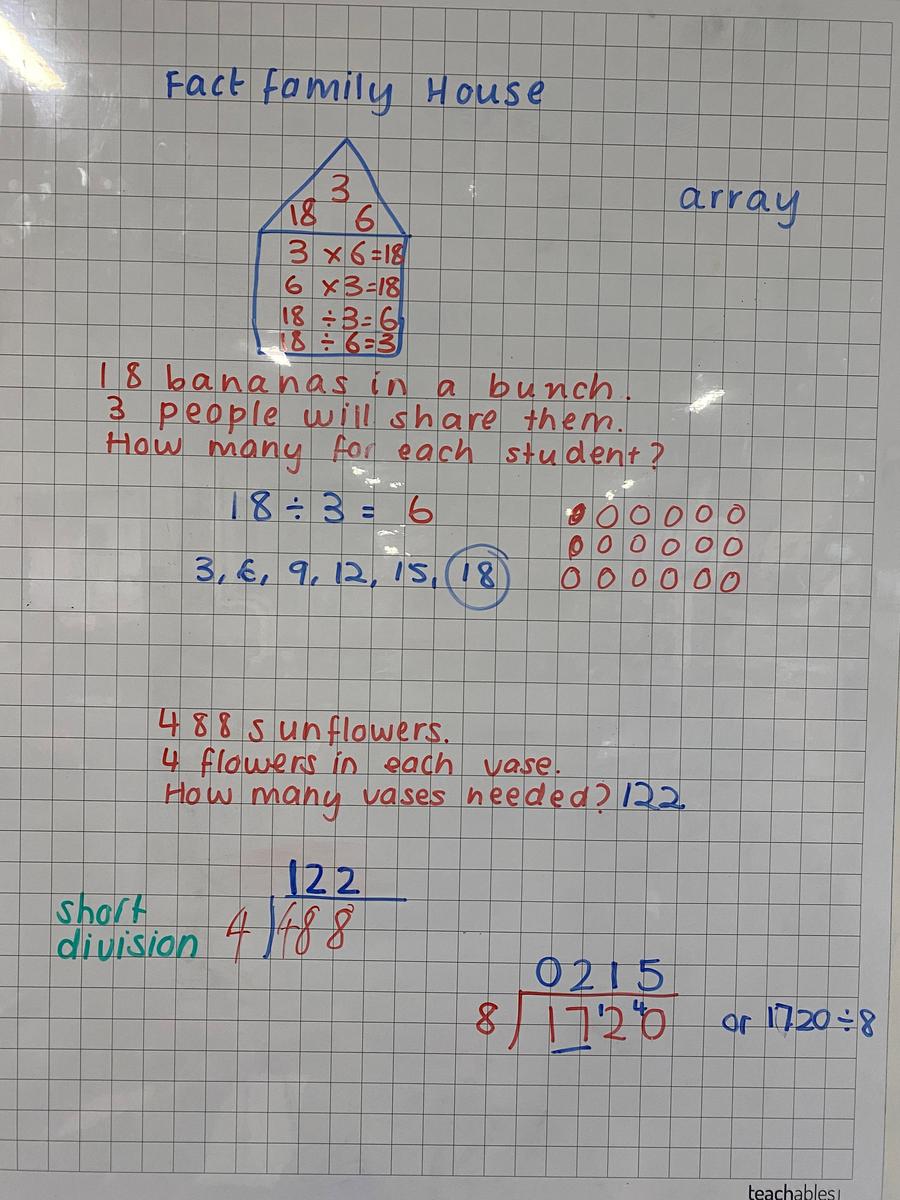 Fact family House
array
3
18 6
3 × 6=18
6 ×3=18
18 ÷3=6
18 ÷ 6=3
18 bananas in a bunch.
3 people will share them.
How many for each student?
18÷3= 6
3, 6, 9, 12, 15, 18
488 sunflowers.
4 flowers in each vase.
How many vases needed? 122
short
division
122
4 488
0215
8 17¹2⁴0 or 1720÷8
teachables